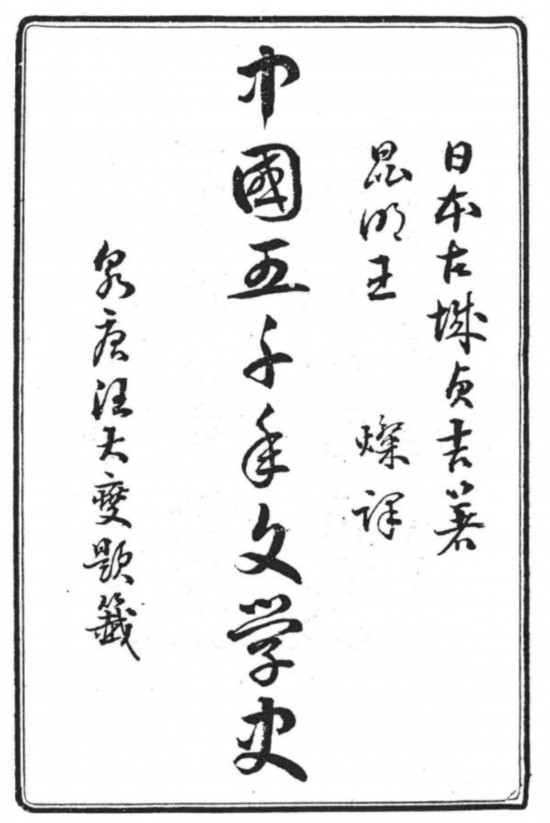 日本古城貞吉著
昆明王 燦譯
中國五千年文学史
泉唐汪大燮題籤